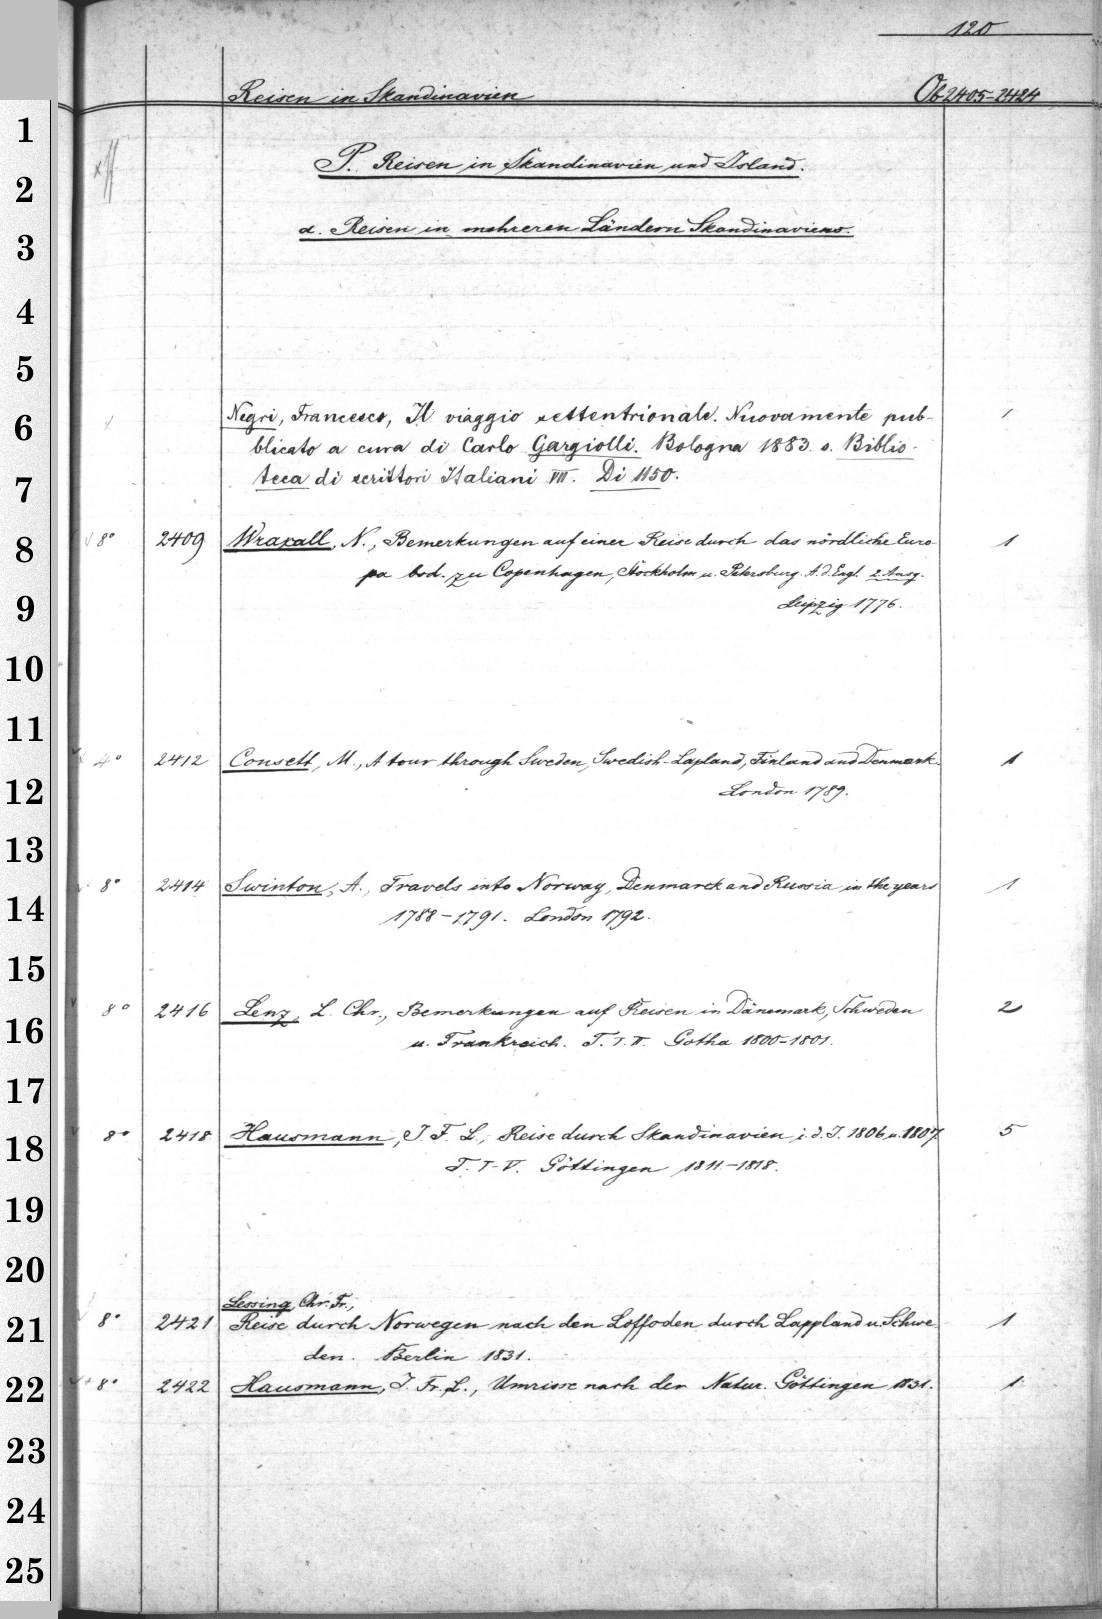 120
Reisen in Skandinavien Ob 2405-2424
P. Reisen in Skandinavien und Island.
a. Reisen in mehreren Ländern Skandinaviens.
Negri, Francesco, Il viaggio settentrionale. Nuovamente pub- 1
blicato a cura di Carlo Gargiolli. Bologna 1883. s. Biblio-
teca di scrittori Italiani VII. Di 1150.
8° 2409 Wraxall, N., Bemerkungen auf einer Reise durch das nördliche Euro 1
pa bsd. zu Copenhagen, Stockholm u. Petersburg. A. d. Engl. 2. Ausg.
Leipzig 1776.
4° 2412 Consett, M., A tour through Sweden, Swedish-Lapland, Finland and Denmark. 1
London 1789.
8° 2414 Swinton, A., Travels into Norway, Denmarck and Russia in the years 1
1788-1791. London 1792.
8° 2416 Lenz, L. Chr., Bemerkungen auf Reisen in Dänemark, Schweden 2
u. Frankreich. T. I. II. Gotha 1800-1801.
8° 2418 Hausmann, J. F. L., Reise durch Skandinavien i. d. J. 1806 u. 1807 5
T. I-V. Göttingen 1811-1818.
Lessing, Chr. Fr.,
8° 2421 Reise durch Norwegen nach den Loffoden durch Lappland u. Schwe 1
den. Berlin 1831.
8° 2422 Hausmann, J. Fr. L., Umrisse nach der Natur. Göttingen 1831. 1
1
2
3
4
5
6
7
8
9
10
11
12
13
14
15
16
17
18
19
20
21
22
23
24
25